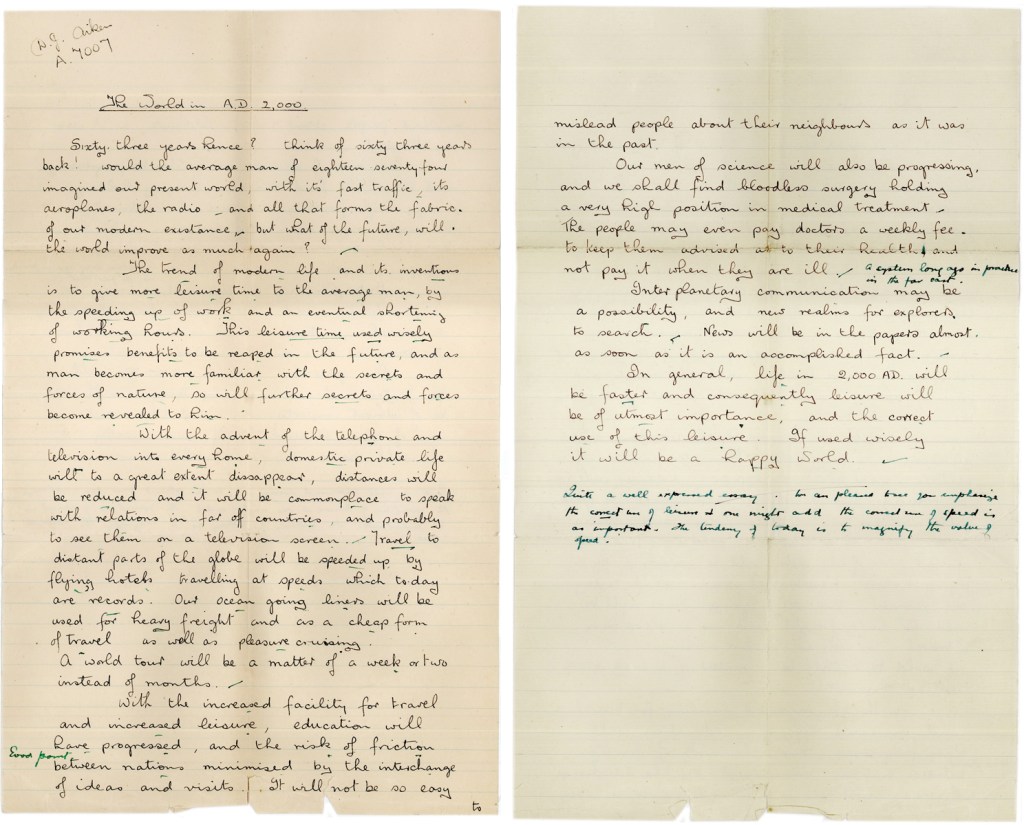 W.J. Aiken
A. 7007
The World in A.D. 2,000
Sixty-three years hence? think of sixty three years
back! would the average man of eighteen seventy four
imagined our present world, with its' fast traffic, its
aeroplanes, the radio - and all that forms the fabric.
of our modern existance, but what of the future, will.
the world improve as much again?
The trend of modern life and its inventions
is to give more leisure time to the average man, by
the speeding up of work and an eventual shortening
of working hours. This leisure time used wisely
promises benefits to be reaped in the future, and as
man becomes more familiar with the secrets and
forces of nature, so will further secrets and forces
become revealed to him.
With the advent of the telephone and
television into every home, domestic private life
will to a great extent dissappear, distances will
be reduced and it will be commonplace to speak
with relations in far off countries, and probably
to see them on a television screen. Travel to
distant parts of the globe will be speeded up by
flying hotels travelling at speeds which to-day
are records. Our ocean going liners will be
used for heavy freight and as a cheap form
of travel as well as pleasure cruising.
A world tour will be a matter of a week or two
instead of months.
With the increased facility for travel
and increased leisure, education will
have progressed, and the risk of friction
Good point
between nations minimised by the interchange
of ideas and visits. It will not be so easy
to
mislead people about their neighbours as it was
in the past.
Our men of science will also be progressing,
and we shall find bloodless surgery holding
a very high position in medical treatment -
The people may even pay doctors a weekly fee.
to keep them advised as to their health and
not pay it when they are ill. A system long ago in practice
in the far east.
Interplanetary communication may be
a possibility, and new realms for explorers
to search. News will be in the papers almost.
as soon as it is an accomplished fact. -
In general, life in 2,000 AD. will
be faster and consequently leisure will
be of utmost importance, and the correct
use of this leisure. If used wisely
it will be a happy World.
Quite a well expressed essay. I am pleased to see you emphasize
the correct use of leisure & one might add the correct use of speed is
as important. The tendency of today is to magnify the value of
speed.